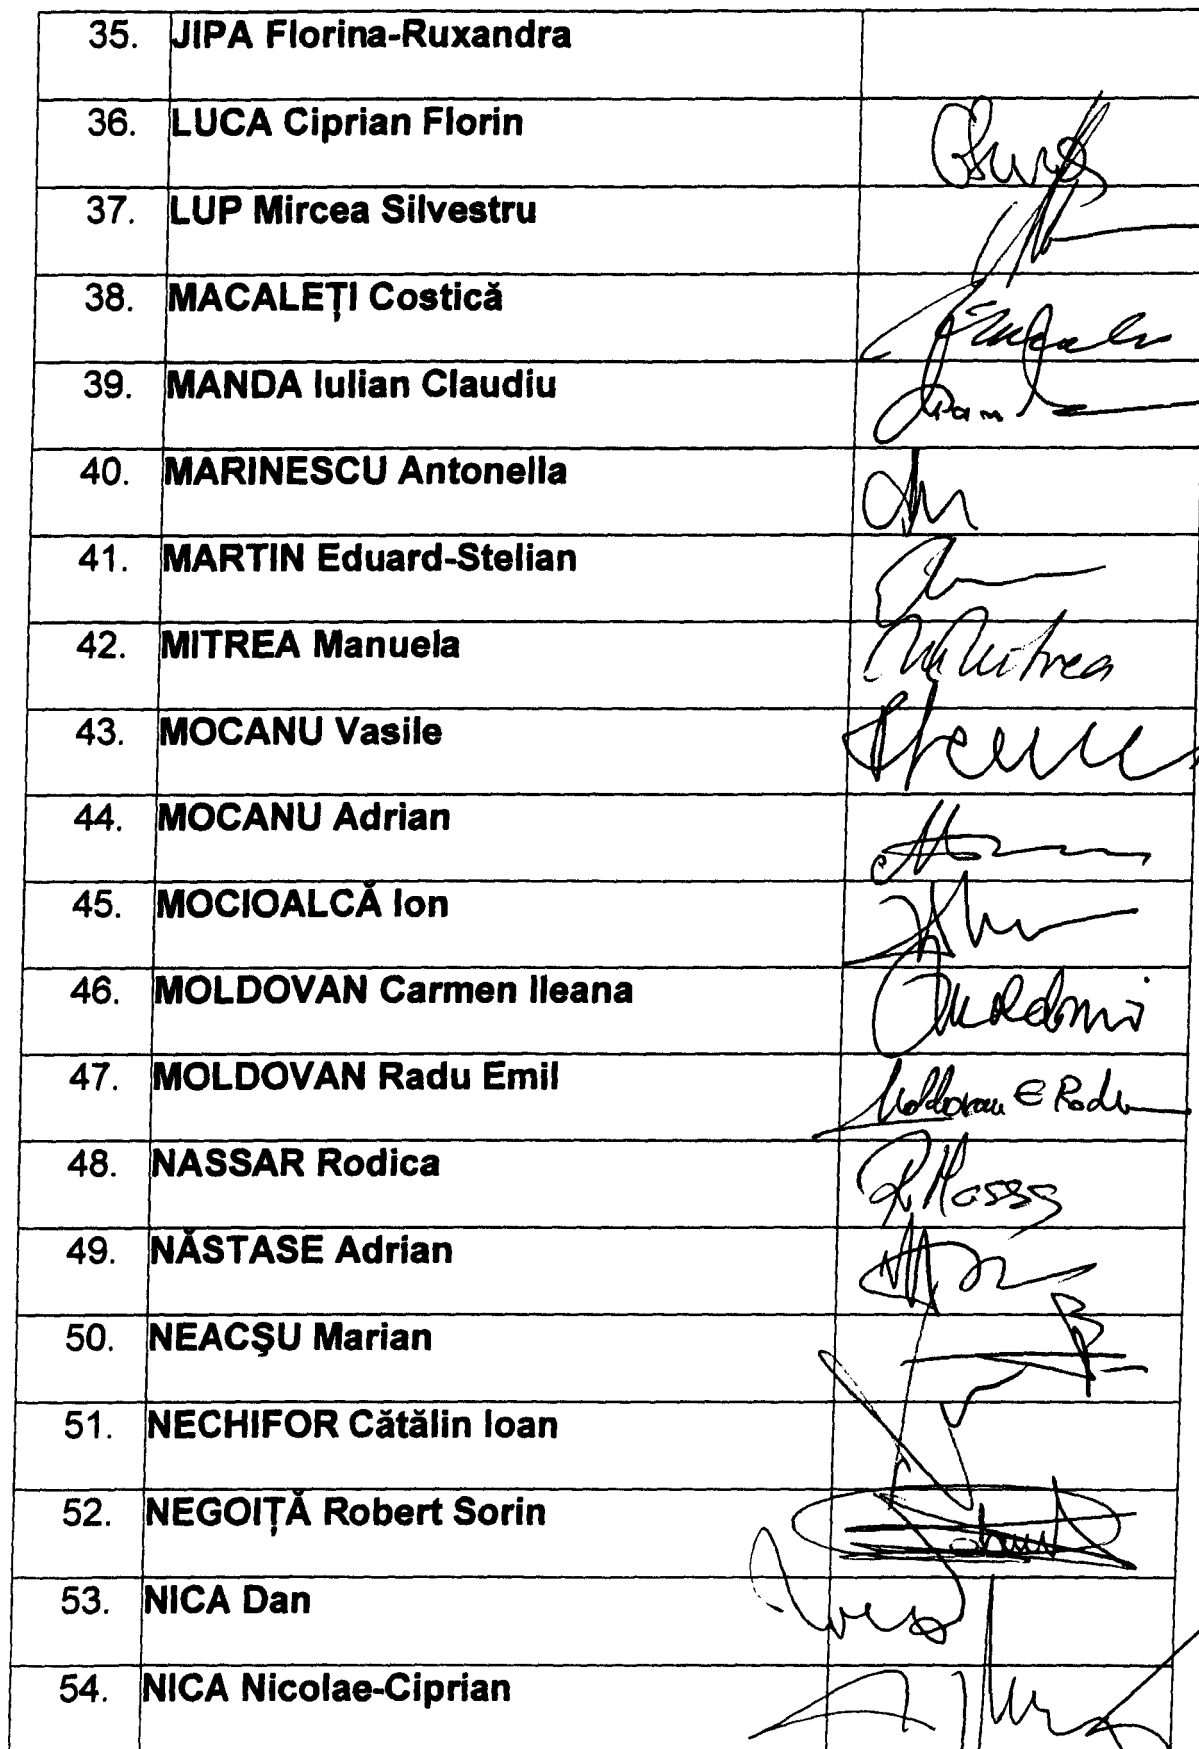 35. JIPA Florina-Ruxandra
36. LUCA Ciprian Florin
37. LUP Mircea Silvestru
38. MACALEȚI Costică
39. MANDA Iulian Claudiu
40. MARINESCU Antonella
41. MARTIN Eduard-Stelian
42. MITREA Manuela MMitrea
43. MOCANU Vasile
44. MOCANU Adrian
45. MOCIOALCĂ Ion
46. MOLDOVAN Carmen Ileana
47. MOLDOVAN Radu Emil Moldovan E Radu
48. NASSAR Rodica
49. NĂSTASE Adrian
50. NEACȘU Marian
51. NECHIFOR Cătălin Ioan
52. NEGOIȚĂ Robert Sorin
53. NICA Dan
54. NICA Nicolae-Ciprian